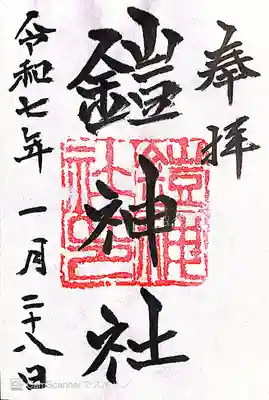 奉拝
鎧神社
鎧神社印
令和七年 一月 二十八日
CamScannerでスキャン